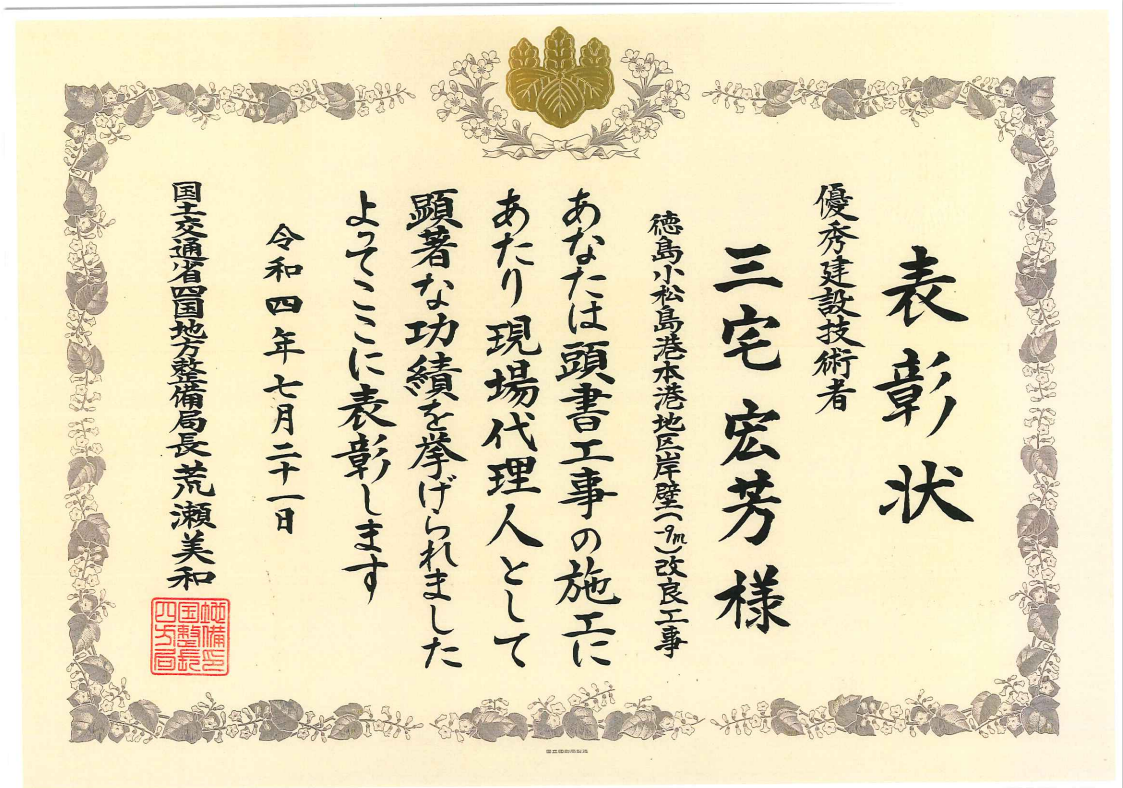 表彰状
優秀建設技術者
三宅宏芳様
徳島小松島港本港地区岸壁(-9m)改良工事
あなたは頭書工事の施工に
あたり現場代理人として
顕著な功績を挙げられました
よってここに表彰します
令和四年七月二十一日
国土交通省四国地方整備局長荒瀬美和